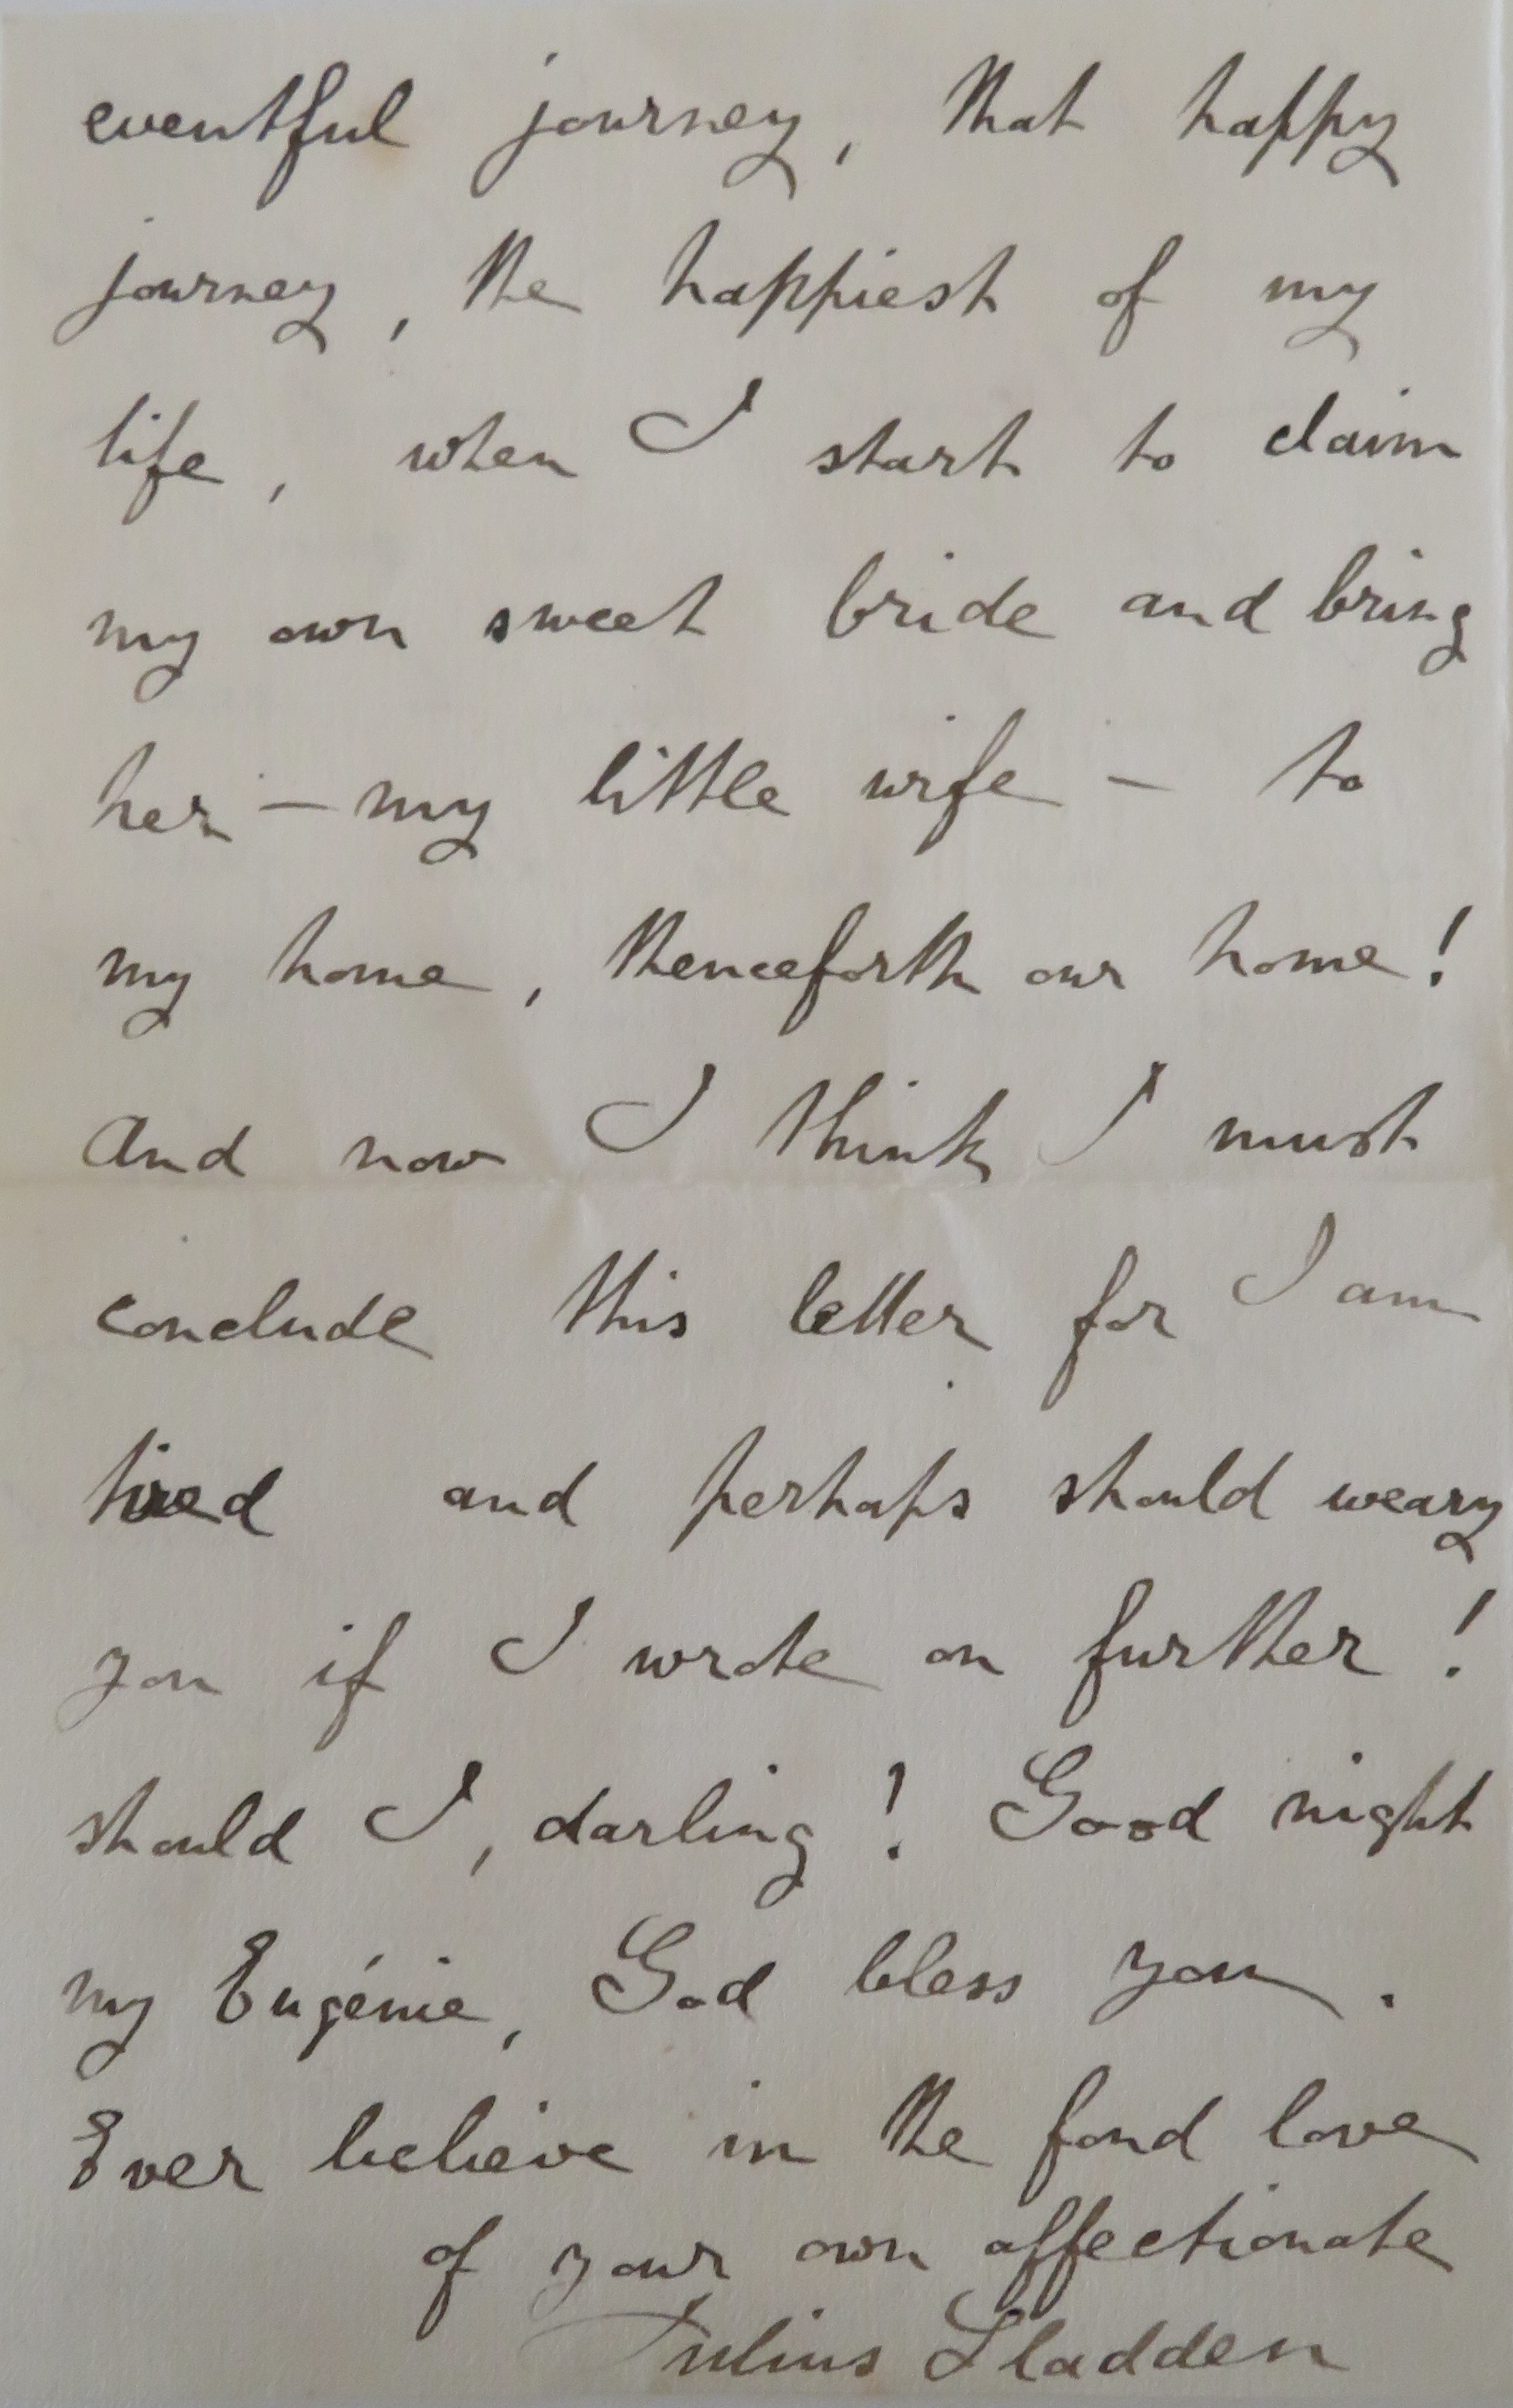 eventful journey, that happy
journey, the happiest of my
life, when I start to claim
my own sweet bride and bring
her – my little wife – to
my home, thenceforth our home!
And now I think I must
conclude this letter for I am
tired and perhaps should weary
you if I wrote on further!
should I, darling! Good night
my Eugénie, God bless you.
Ever believe in the fond love
of your own affectionate
Julius Gladden